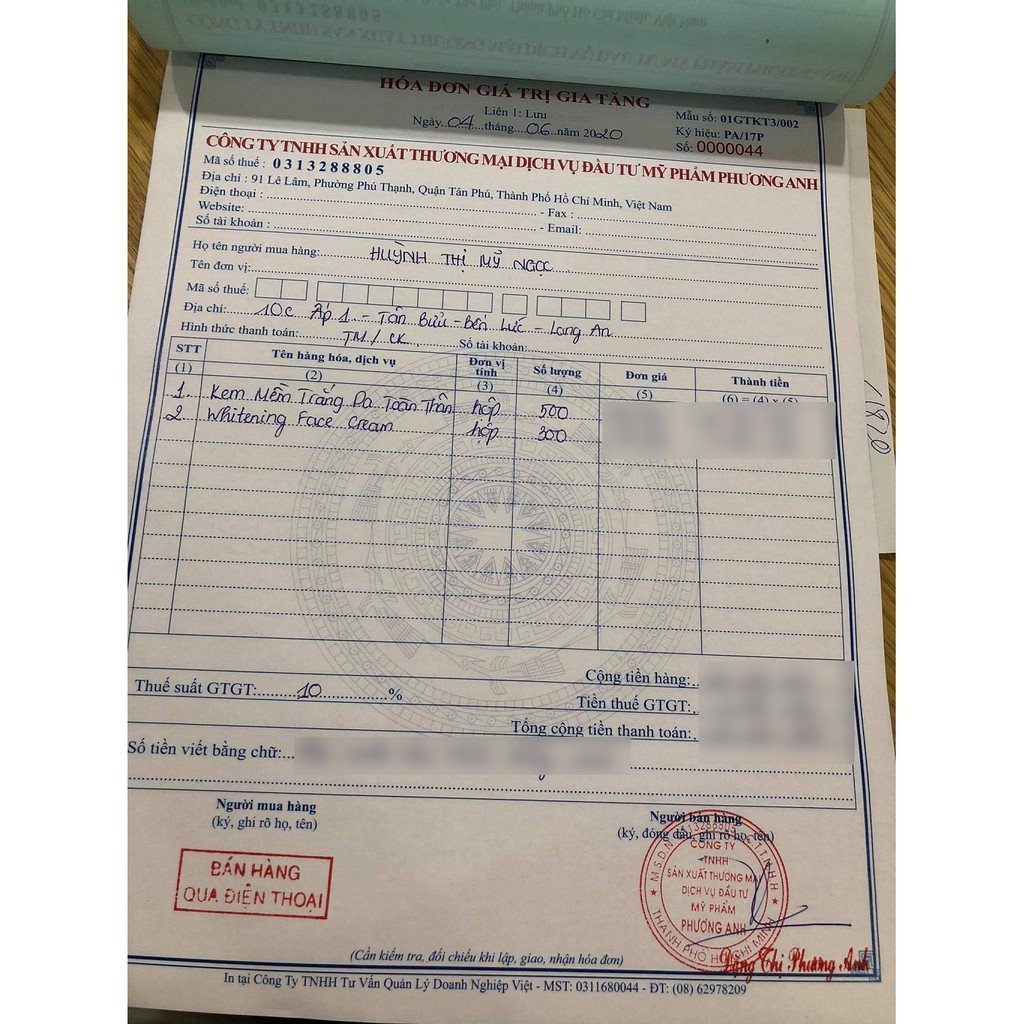 HÓA ĐƠN GIÁ TRỊ GIA TĂNG
Liên 1: Lưu
Ngày 04 tháng 06 năm 2020
Mẫu số: 01GTKT3/002
Ký hiệu: PA/17P
Số: 0000044
CÔNG TY TNHH SẢN XUẤT THƯƠNG MẠI DỊCH VỤ ĐẦU TƯ MỸ PHẨM PHƯƠNG ANH
Mã số thuế : 0313288805
Địa chỉ : 91 Lê Lâm, Phường Phú Thạnh, Quận Tân Phú, Thành Phố Hồ Chí Minh, Việt Nam
Điện thoại : - Fax :
Website: - Email:
Số tài khoản :
Họ tên người mua hàng: HUỲNH THỊ MỸ NGỌC
Tên đơn vị:
Mã số thuế:
Địa chỉ: 10C Ấp 1 - Tân Bửu - Bến Lức - Long An
Hình thức thanh toán: TM / CK Số tài khoản:
STT Tên hàng hóa, dịch vụ Đơn vị tính Số lượng Đơn giá Thành tiền
(1) (2) (3) (4) (5) (6) = (4) x (5)
1. Kem Mềm Trắng Da Toàn Thân hộp 500
2 Whitening Face Cream hộp 300
Cộng tiền hàng:
Thuế suất GTGT: 10 % Tiền thuế GTGT:
Tổng cộng tiền thanh toán:
Số tiền viết bằng chữ:
Người mua hàng
(ký, ghi rõ họ, tên)
Người bán hàng
(ký, đóng dấu, ghi rõ họ, tên)
BÁN HÀNG
QUA ĐIỆN THOẠI
CÔNG TY
TNHH
SẢN XUẤT THƯƠNG MẠI
DỊCH VỤ ĐẦU TƯ
MỸ PHẨM
PHƯƠNG ANH
THÀNH PHỐ HỒ CHÍ MINH
Đặng Thị Phương Anh
(Cần kiểm tra, đối chiếu khi lập, giao, nhận hóa đơn)
In tại Công Ty TNHH Tư Vấn Quản Lý Doanh Nghiệp Việt - MST: 0311680044 - ĐT: (08) 62978209